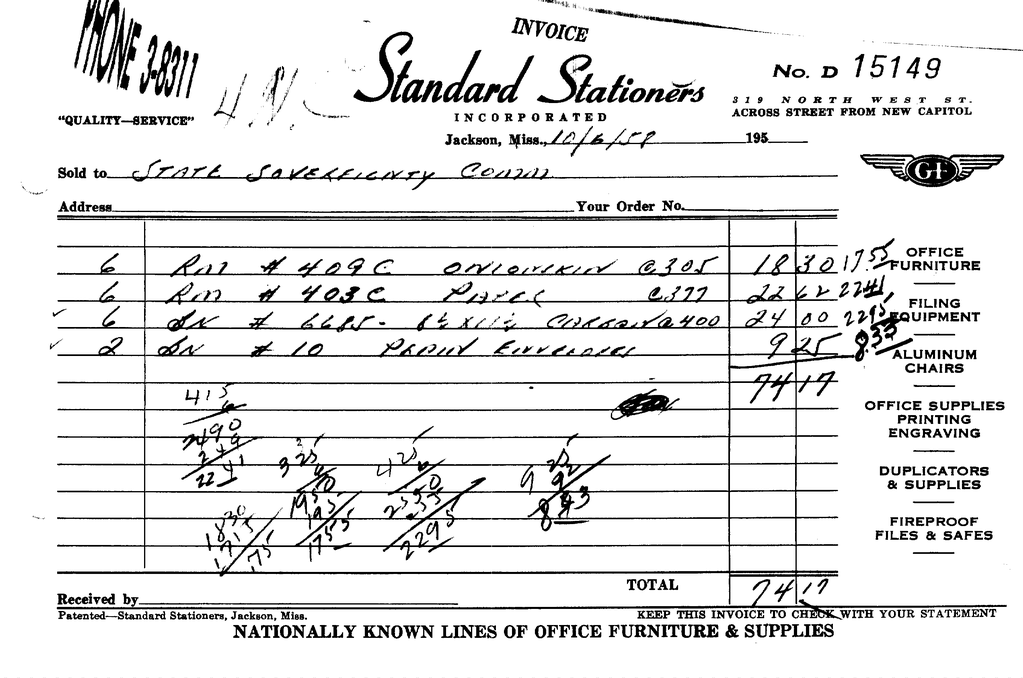 INVOICE
PHONE 3-8311
Standard Stationers
No. D 15149
INCORPORATED
319 NORTH WEST ST.
ACROSS STREET FROM NEW CAPITOL
"QUALITY—SERVICE"
Jackson, Miss., 10/6/58 195
Sold to STATE SOVEREIGNTY COMM
GF
Address Your Order No.
6 RM # 409C ONIONSKIN @305 18 30 17.55
6 RM # 403C PAPER @377 22 62 22 41
6 # 6685- 8½ x 11½ CARBON @400 24 00 22 95
2 # 10 PLAIN ENVELOPES 9 25 8.33
74 17
OFFICE FURNITURE
FILING EQUIPMENT
ALUMINUM CHAIRS
OFFICE SUPPLIES
PRINTING
ENGRAVING
DUPLICATORS
& SUPPLIES
FIREPROOF
FILES & SAFES
415
6
2490
249
2241
325
6
1950
195
1755
425
6
2550
255
2295
925
92
1830
TOTAL 74 17
Received by
Patented—Standard Stationers, Jackson, Miss.
KEEP THIS INVOICE TO CHECK WITH YOUR STATEMENT
NATIONALLY KNOWN LINES OF OFFICE FURNITURE & SUPPLIES